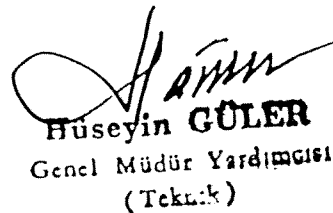 Hüseyin GÜLER
Genel Müdür Yardımcısı
(Teknik)